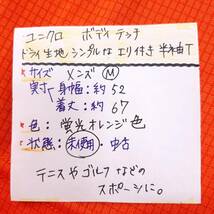 ユニクロ ボディテック
ドライ生地 シンプルな エリ付き 半袖T
★サイズ メンズ Ⓜ
実寸 身幅:約52
着丈:約67
★色:蛍光オレンジ色
★状態:未使用・中古
テニスやゴルフなどの
スポーツに。